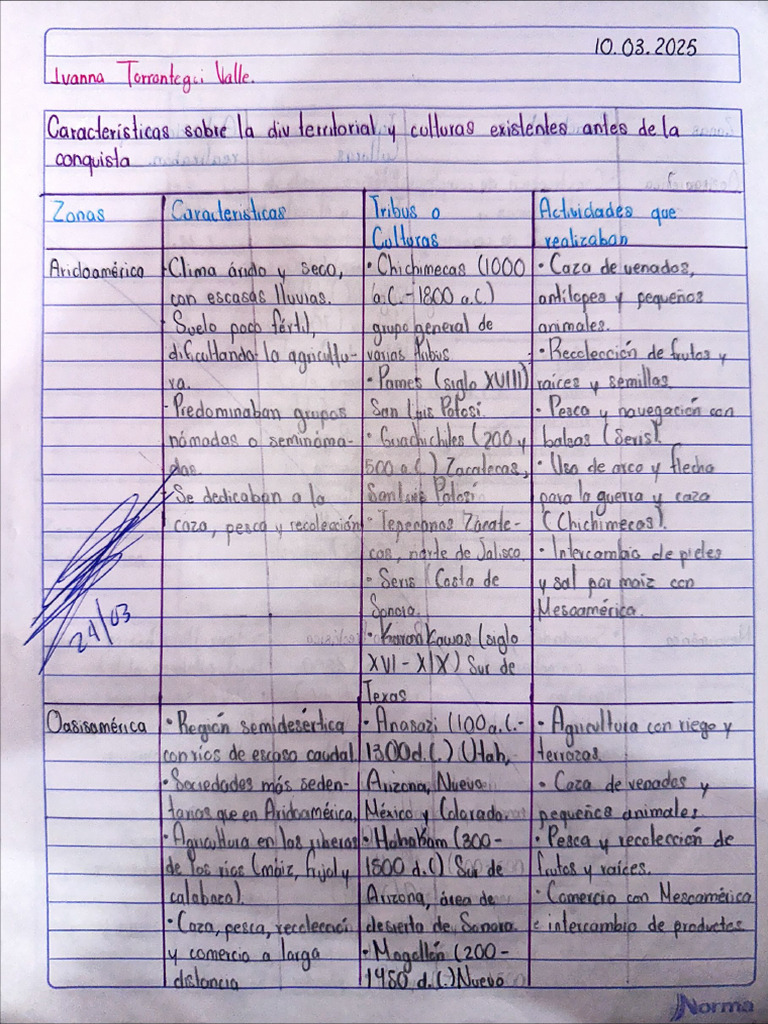 10.03.2025
Ivanna Torrontegui Valle.
Características sobre la div territorial y culturas existentes antes de la
conquista
Zonas
Características
Tribus o
Culturas
Actividades que
realizaban
Aridoamérica
- Clima árido y seco,
con escasas lluvias.
- Suelo poco fértil,
dificultando la agricultu-
ra.
- Predominaban grupos
nómadas o seminóma-
das.
- Se dedicaban a la
caza, pesca y recoleción
• Chichimecas (1000
a.C.-1800 a.C)
grupo general de
varias tribus
• Pames (siglo XVIII)
San Luis Potosí.
• Guachichiles (200 y
500 a.C.) Zacatecas,
San Luis Potosí
• Tepecanos Zacate-
cas, norte de Jalisco.
• Seris (Costa de
Sonora.
• Karankawas (siglo
XVI - XIX) Sur de
Texas
• Caza de venados,
antílopes y pequeños
animales.
• Recolección de frutos y
raíces y semillas
• Pesca y navegación con
balsas (Seris).
• Uso de arco y flecha
para la guerra y caza
(Chichimecas).
• Intercambio de pieles
y sal por maíz con
Mesoamérica.
24/03
Oasisamérica
• Región semidesértica
con ríos de escaso caudal
• Sociedades más seden-
tarias que en Aridoamérica,
• Agricultura en las riberas
de los ríos (maíz, frijol y
calabaza).
• Caza, pesca, recolección
y comercio a larga
distancia
• Anasazi (100a.C.-
1300d.C.) Utah,
Arizona, Nuevo
México y Colorado.
• Hohokam (300-
1500 d.C) Sur de
Arizona, área de
desierto de Sonora.
• Mogollón (200-
1450 d.C.) Nuevo
• Agricultura con riego y
terrazas.
• Caza de venados y
pequeños animales.
• Pesca y recolección de
frutos y raíces.
• Comercio con Mesoamérica
e intercambio de productos
Norma